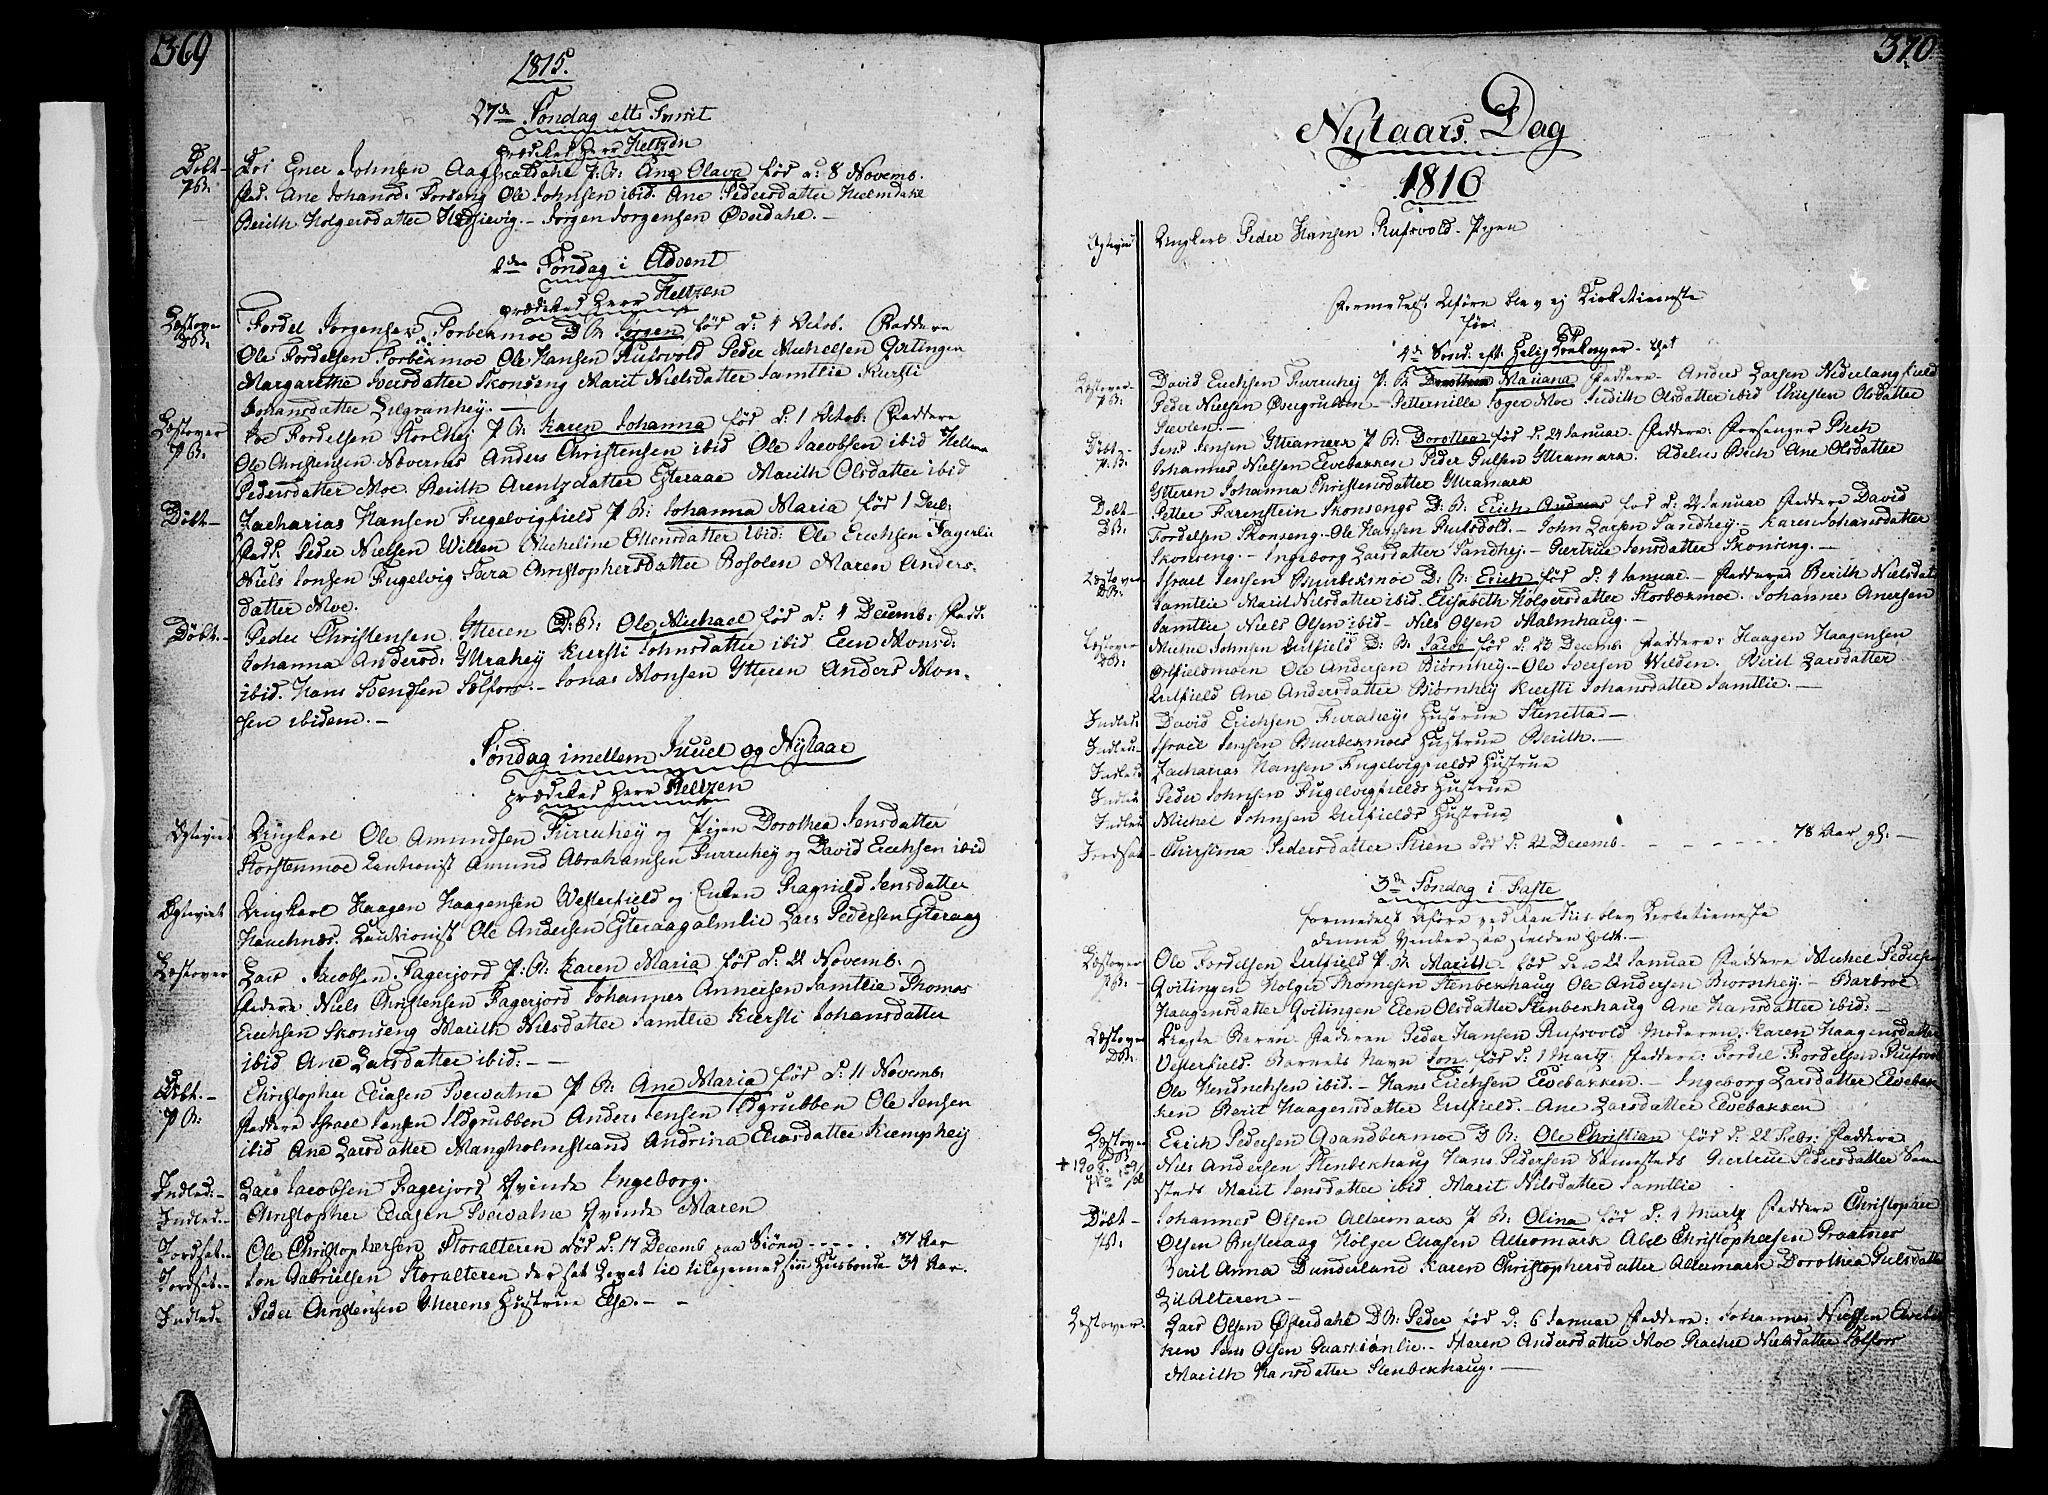 369
1815.
27de Søndag eft Trinit
prædiked Herr Heltzen
Døbt
P.B:
Ener Johnsen Aagskaldahl P. B: Ane Olava fød d: 8 Novemb.
Fad. Ane Johansd. Forseng Ole Johnsen ibid. Ane Pedersdatter Hielmdahl
Berith Holgersdatter - Jørgen Jørgensen Øverdahl. -
Søndag i Advent
prædiked Herr Heltzen
DB:
Fordel Jørgensen Storbekmoe D B: Jørgen fød d: 4 Octob. Faddere
Ole Fordelsen Storbekmoe Ole Hansen Rufsvold Peder Michelsen Qvitingen
Margarethe Iversdatter Skonseng Marit Nielsdatter Samtlie Kiersti
Johansdatter Lilgranhey. -
Læstover
P B:
Fordelsen Storehej P. B: Karen Johanna fød d: 1 Octob: Faddere
Ole Christensen Novernæs Anders Christensen ibid Ole Jacobsen ibid
Pedersdatter Moe Berith Arentzdatter Ytteraae Marith Olsdatter ibid
Døbt -
Zacharias Hansen Fugelvigfield P B: Johanna Maria fød 1 Dec:
Fadd. Peder Nielsen Willen Micheline Ottensdatter ibid: Ole Erichsen Fagerlie
Niels Jonsen Fugelvig Sara Christophersdatter Rosolen Maren Anders-
datter Moe.
Døbt. -
Peder Christensen Ytteren D: B: Ole Michael fød d: 4 Decemb: Fadd:
Johanna Andersd: Yttrahey Kiersti Johnsdatter ibid Elen Monsd:
ibid. Hans Svendsen Selfors. - Jonas Monsen Ytteren Anders Mon-
sen ibidem. -
Søndag imellem Juuel og Nytaar
prædiked Herr Heltzen
Ungkarl Ole Amundsen Furruhey og Pigen Dorothea Jensdatter
Storstenmoe Cautionist Amund Abrahamsen Furruhey og David Erichsen ibid
Ungkarl Haagen Haagensen Westerfield og Enken Ragnild Jensdatter
Hauchnæs. Cautionist Ole Andersen Ytteraagalmlie Lars Pedersen Ytteraag
Læstover
Lars Jacobsen Fagerjord P. B: Karen Maria fød d: 22 Novemb.
Fadere Niels Christensen Fagerjord Johannes Annersen Samtlie Thomas
Erichsen Skonseng Marith Nilsdatter Samtlie Kiersti Johansdatter
ibid Ane Larsdatter ibid. -
Døbt. -
P B:
Christopher Eliasen Svervatne P B: Ane Maria fød d: 11 Novemb:
Faddere Israel Jensen Ildgrubben Anders Jensen Ildgrubben Ole Jensen
ibid Ane Larsdatter Mangholmstrand Andrina Eliasdatter Kiemphey
Indled: -
Lars Jacobsen Fagerjord Qvinde Ingeborg.
Indled. -
Christopher Eliasen Svervatne Qvinde Maren
Jordsat. -
Ole Christophersen Storalteren død d: 17 Decemb paa Siøen - - - - 37 Aar
Jordsat. -
Jon Gabrielsen Storalteren der sat Livet til tilligemed sin Husbonde 34 Aar.
Indled:
Peder Christensen Ytterens Hustrue Else. -
370
Nytaars Dag
1816
Ungkarl Peder Hansen Rufsvold - Pigen
Formedelst Uføre blev ej Kirketieneste
før:
4de Sønd. eft. Hellig 3 Konger -
P B:
David Erichsen Furruhej P. B: Mariana Faddere - Anders Larsen Nederlangfield
Peder Nielsen Øvergrubben - Petternille Jæger Moe Judith Olsdatter ibid Kirsten Olsdatter
Døbt -
P. B:
Jens Jensen Yttramark P B: Dorothea fød d: 24 Januar. Faddere: Bech
Johannes Nielsen Elvebakken Peder Gulsen Yttramark. Adelus Bech Ane Olsdatter
Ytteren Johanna Christensdatter Yttramark
Døbt -
DB:
Petter Farenstein Skonsengs D. B: Erich Andreas fød d: 22 Januar Faddere David
Fordelsen Skonseng. Ole Hansen Rufsvold. - John Larsen Sandhej. - Karen Johansdatter
Skonseng. - Ingeborg Larsdatter Sandhej. - Giertrue Jensdatter Skonseng. -
Læstover
DB:
Israel Jensen Buerbekmoe D: B: Erich fød d: 4 Januar. - Faddere Berith Nielsdat
Samtlie Marit Nilsdatter ibid. Elisabeth Holgersdatter Storbekmoe. Johanne Anersen
Samtlie Niels Olsen ibid - Nils Olsen Malmhaug. -
DB:
Michel Johnsen Urtfield D: B: fød d: 23 Decemb. Faddere: Haagen Haagensen
Urtfieldmoen Ole Andersen Biørnhey. - Ole Iversen Wilden. Berit Larsdatter
Urtfield Ane Andersdatter Biørnhey Kiersti Johansdatter Samtlie. -
Indled:
David Erichsen Furuhejs Hustrue
Indled:
Israel Jensen Buerbekmoes Hustrue Berith. -
Indled:
Zacharias Hansen Fugelvigfields Hustrue
Indled
Peder Johnsen Fugelvigfields Hustrue
Indled
Michel Johnsen Urtfields Hustrue
Jordsat -
Christina Pedersdatter Stien død d: 22 Decemb. - - - - - - 78 Aar gl: -
3de Søndag i Faste
formedelst Uføre blev Kirketieneste
denne Vinter saa sielden holdt. -
Læstover
P B: -
Ole Fordelsen Urtfield P. B: Marith fød den 22 Januar Faddere Michel Peders
Qvitingen Holger Thomesen Stenbekhaug Ole Andersen Biørnhey. - Barbroe
Haagensdatter Qvitingen Elen Olsdatter Stenbekhaug Ane Hansdatter ibid: -
Læstover
DB:
Uægte Barn. Faderen Peder Hansen Rufsvold Moderen: Karen Haagensdatter
Vesterfield. Barnets Navn Jon fød d: 1 Martz Faddere: Fordel Fordelsen Rufsvol
Ole Hendrichsen ibid. - Hans Erichsen Elvebakken. - Ingeborg Larsdatter Elvebak
ken Berit Haagensdatter Urtfield. - Ane Larsdatter Elvebakken
Læstover
DB:
Erich Pedersen Gvandbekmoe D B: Ole Christian fød d: 22 Febr: Faddere
Nils Andersen Stenbekhaug Hans Pedersen Giertrue Pedersdatter
Marit Jensdatter ibid Marit Nilsdatter Samtlie
Døbt -
P B:
Johannes Olsen Altermark P B: Olina fød d: 4 Martz Faddere Christopher
Olsen Holger Eliasen Altermark Abel Christophersen Praatnes
Beril Anna Dunderland Karen Christophersdatter Altermark Dorothea Pulsdatter
LilAlteren -
Læstover.
Lars Olsen Østerdahl D B: Peder fød d: 6 Januar Faddere: Johannes Nielsen Elvebak
ken Jens Olsen - Maren Andersdatter Moe Rachel Nielsdatter Selfors
Marith Hansdatter Stenbekhaug. -